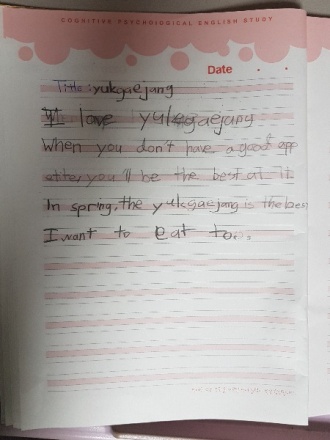 COGNITIVE PSYCHOLOGICAL ENGLISH STUDY
Date . .
Title : yukgaejang
I love yukegaejang
When you don't have a good app
etter you'll be the best at it
In spring, the yukgaejang is the bes
I want to eat to..